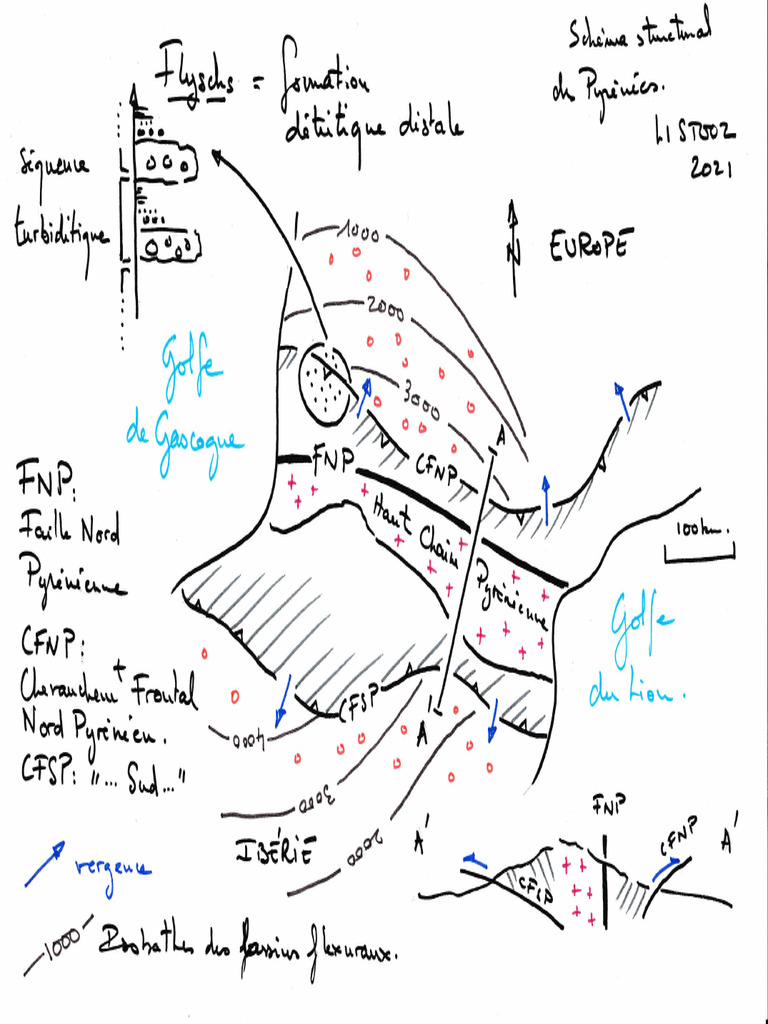 Schéma structural
des Pyrénées.
LISTOOZ
2021
Flyschs = formation
détritique distale
Séquence
turbiditique
N
EUROPE
1000
2000
3000
Golfe
de Gascogne
A
FNP
CFNP
Haut Chain
Pyrénéenne
100 km.
FNP:
Faille Nord
Pyrénéenne
CFNP:
Chevauchemt Frontal
Nord Pyrénéen.
CFSP: "... Sud..."
Golfe
du Lion.
CFSP
4000
3000
2000
A'
IBÉRIE
vergence
1000 Isobathes des bassins flexuraux.
FNP
A'
CFSP
CFNP
A'